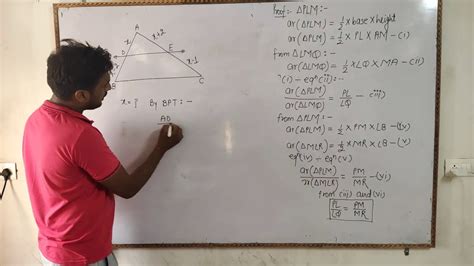 A
x
x+2
D
E
x-1
B
C
x = ? By BPT : -
AD
Proof :- △PLM :-
ar(△PLM) = 1/2 × base × height
ar(△PLM) = 1/2 × PL × AM - (i)
from △LMQ :-
ar(△LMQ) = 1/2 × LQ × MA - (ii)
(i) - eqⁿ(ii) : -
ar(△PLM)/ar(△LMQ) = PL/LQ - (iii)
from △PLM : -
ar(△PLM) = 1/2 × PM × LB - (iv)
ar(△MLR) = 1/2 × MR × LB - (v)
eqⁿ(iv) - eqⁿ(v)
ar(△PLM)/ar(△MLR) = PM/MR - (vi)
from (iii) and (vi)
PL/LQ = PM/MR